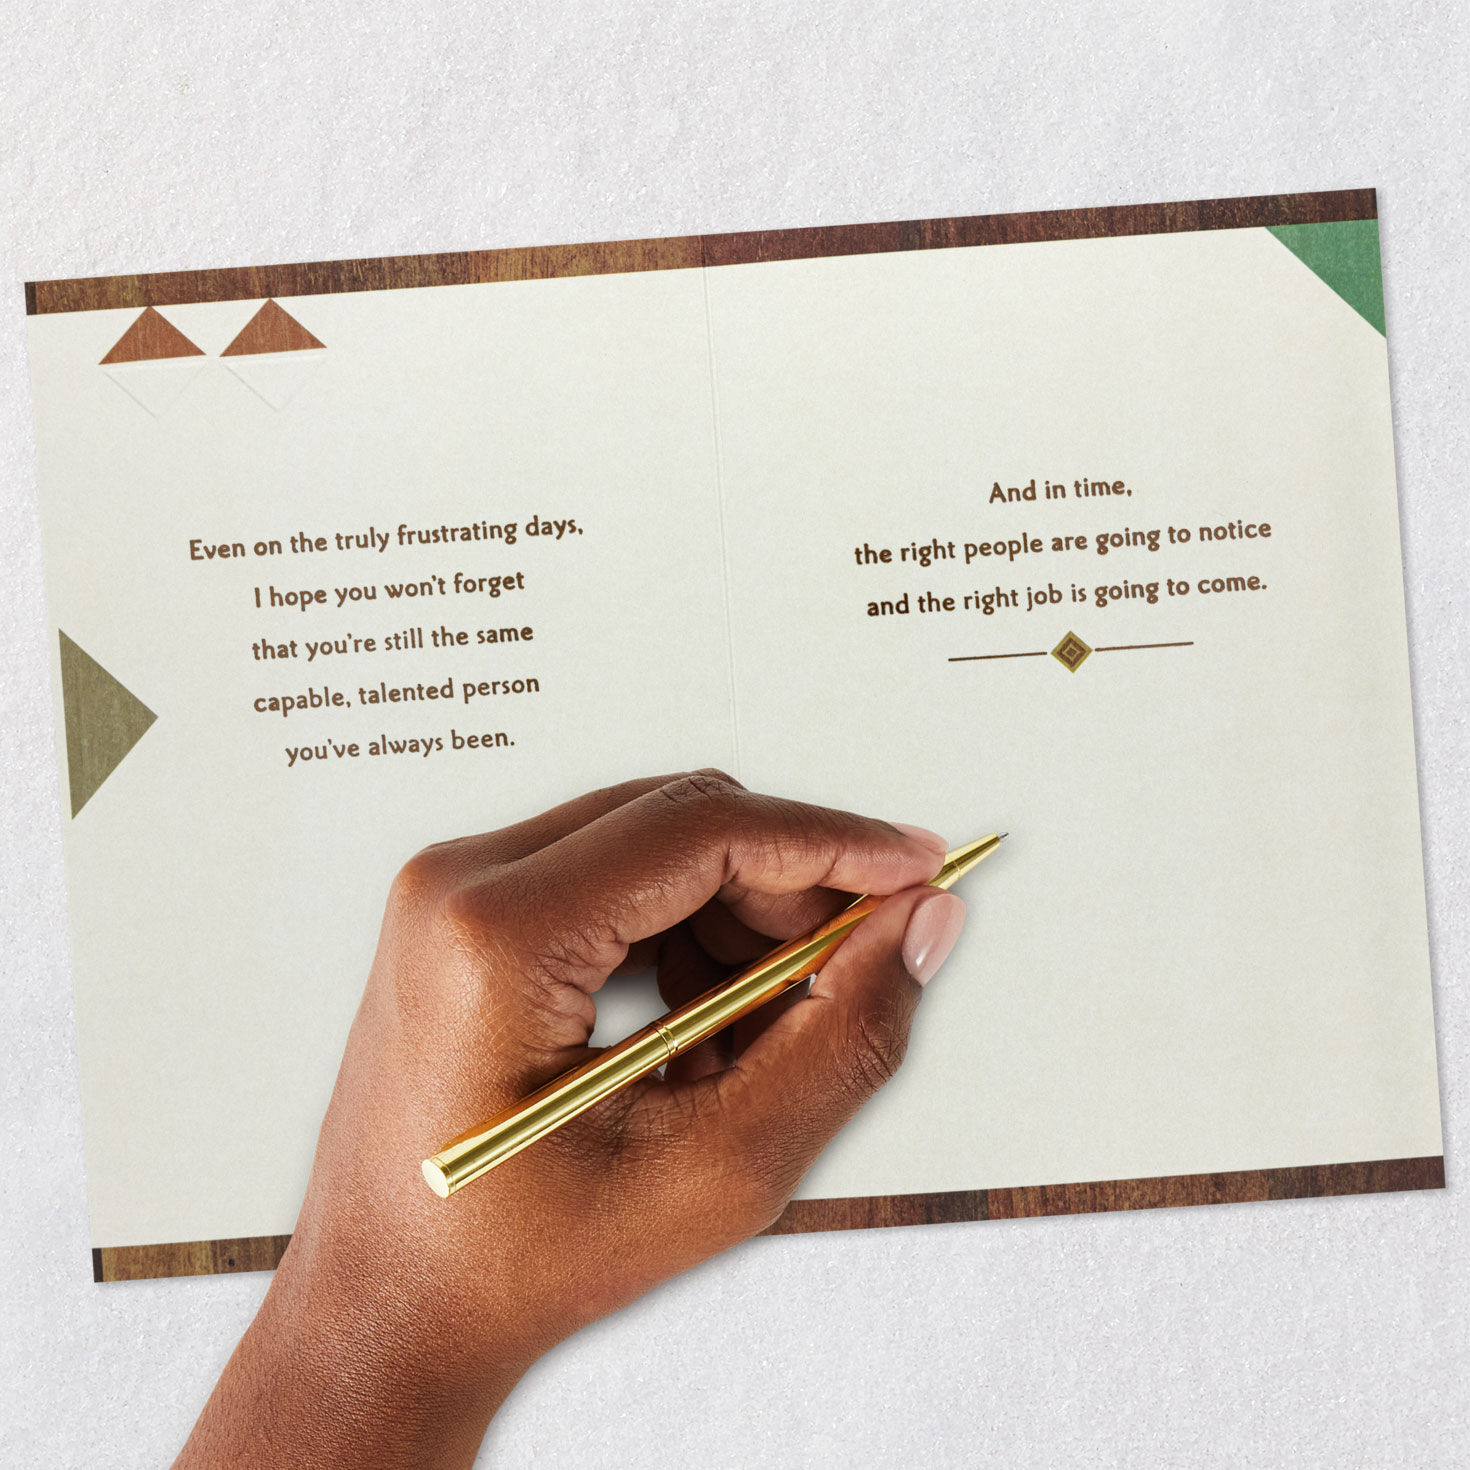 Even on the truly frustrating days,
I hope you won't forget
that you're still the same
capable, talented person
you've always been.
And in time,
the right people are going to notice
and the right job is going to come.